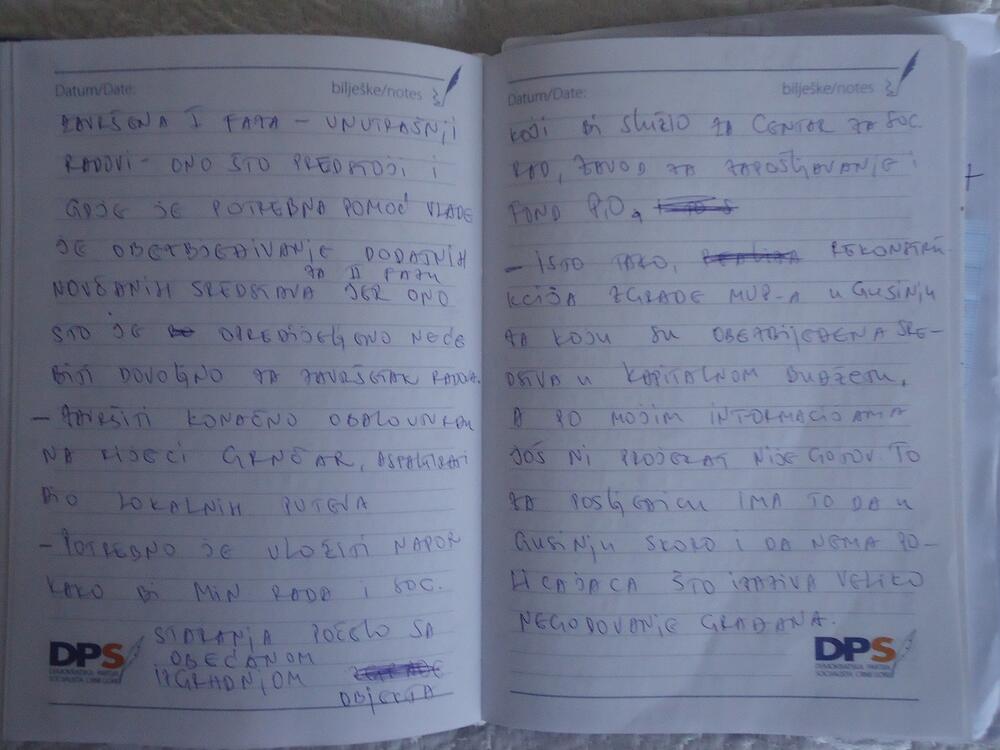 Datum/Date: bilješke/notes
ZAVRŠENA I FAZA - UNUTRAŠNJI
RADOVI - ONO ŠTO PREDSTOJI I
GDJE JE POTREBNA POMOĆ VLADE
JE OBEZBJEĐIVANJE DODATNIH
ZA II FAZU
NOVČANIH SREDSTAVA JER ONO
ŠTO JE OPREDIJELJENO NEĆE
BITI DOVOLJNO ZA ZAVRŠETAK RADOVA.
- ZAVRŠITI KONAČNO OBALOUTVRDU
NA RIJECI GRNČAR, ASFALTIRATI
DIO LOKALNIH PUTEVA
- POTREBNO JE ULOŽITI NAPOR
KAKO BI MIN RADA I SOC.
STARANJA POČELO SA
OBEĆANOM
IZGRADNJOM
OBJEKTA
DPS
DEMOKRATSKA PARTIJA
SOCIJALISTA CRNE GORE
Datum/Date: bilješke/notes
KOJI BI SLUŽIO ZA CENTAR ZA SOC.
RAD, ZAVOD ZA ZAPOŠLJAVANJE I
FOND PIO,
- ISTO TAKO, REKONSTRU-
KCIJA ZGRADE MUP-A U GUSINJU
ZA KOJU SU OBEZBIJEĐENA SRE-
DSTVA U KAPITALNOM BUDŽETU,
A PO MOJIM INFORMACIJAMA
JOŠ NI PROJEKAT NIJE GOTOV. TO
ZA POSLJEDICU IMA TO DA U
GUSINJU SKORO I DA NEMA PO-
LICAJACA ŠTO IZAZIVA VELIKO
NEGODOVANJE GRAĐANA.
DPS
DEMOKRATSKA PARTIJA
SOCIJALISTA CRNE GORE